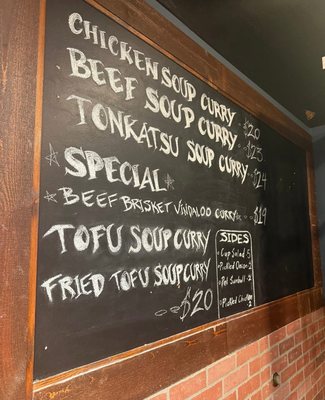 CHICKEN SOUP CURRY - $20
BEEF SOUP CURRY - $23
TONKATSU SOUP CURRY - $24
SPECIAL
BEEF BRISKET VINDALOO CURRY - $19
TOFU SOUP CURRY
FRIED TOFU SOUP CURRY
$20
SIDES
Cup Salad 5
Pickled Onion 2
Rel Sambull 2
Pickled